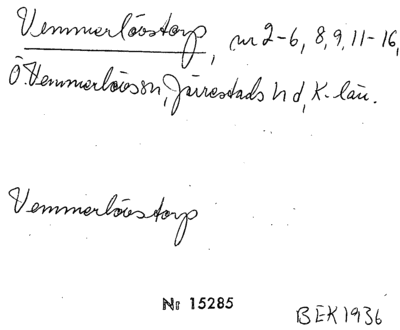 Vemmerlövstorp, nr 2-6, 8, 9, 11-16,
Ö. Vemmerlövs sn, Järrestads hd, K-län.
Vemmerlövstorp
Nr 15285
BEK 1936